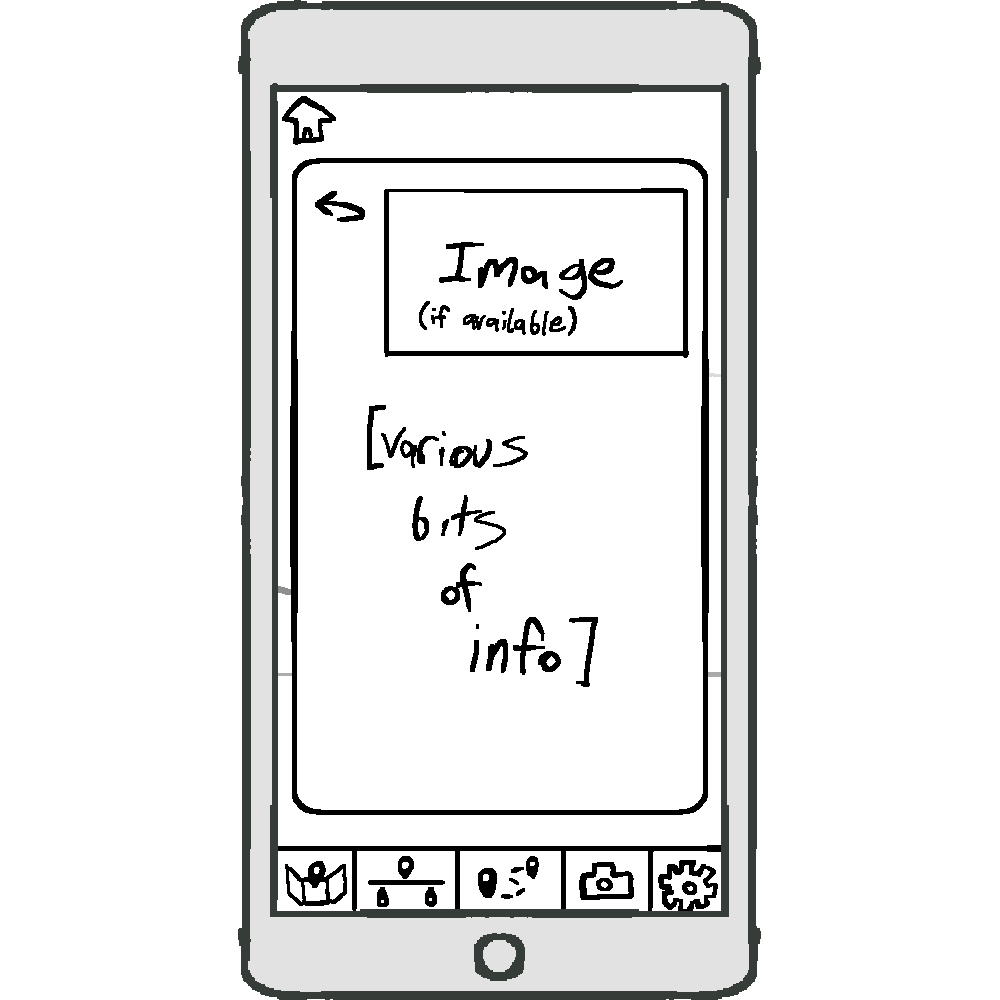 Image
(if available)
[various
bits
of
info]